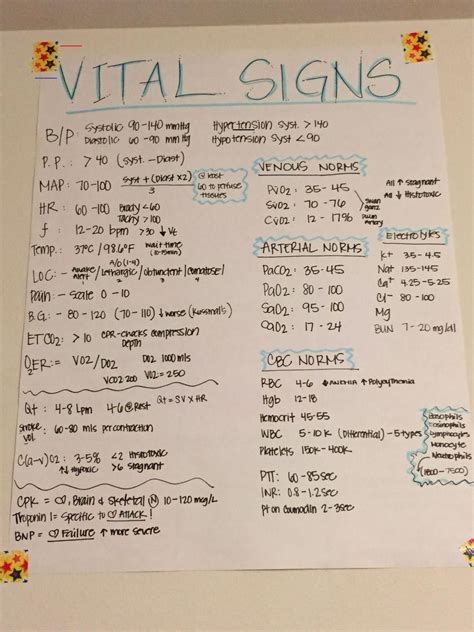 VITAL SIGNS
B/P: Systolic 90-140 mmHg
Diastolic 60-90 mmHg
Hypertension Syst. >140
Hypotension Syst <90
P.P.: > 40 (Syst. - Diast)
MAP: 70-100 Syst + (Diast x2)
3
@ least
60 to perfuse
tissues
HR: 60-100 Brady <60
Tachy >100
f: 12-20 bpm >30 ↓ Vt
Temp.: 37°C / 98.6°F wait time
(10-15min)
LOC: - Awake
Alert / Lethargic / obtunded / comatose /
Pain: - Scale 0-10
B.G: - 80-120 (70-110) ↓ worse (Kussmal's)
ETCO2: > 10 CPR-checks compression
Depth
O2ER: = VO2/DO2 DO2 1000 mls
VCO2 200 VO2 = 250
Qt: 4-8 Lpm 4-6 @ Rest Qt = SV x HR
Stroke
Vol: 60-80 mls per contraction
C(a-v)O2: 3-5% <2 Histotoxic
>6 Stagnant
CPK = ♡, Brain & Skeletal Ⓝ 10-120 mcg/L
Troponin I = Specific to ♡ Attack!
BNP = ♡ Failure ↑ more severe
VENOUS NORMS
PvO2: 35-45
SvO2: 70-76
CvO2: 12-17%
All ↑ Stagnant
All ↓ Histotoxic
Swan
Ganz
ARTERIAL NORMS
PaCO2: 35-45
PaO2: 80-100
SaO2: 95-100
CaO2: 17-24
Electrolytes
K+ 3.5-45
Na+ 135-145
Ca+ 4.25-5.25
Cl- 80-100
Mg
BUN 7-20 mg/dl
CBC NORMS
RBC 4-6 ↓ Anemia ↑ Polycythemia
Hgb 12-18
Hemocrit 45-55
WBC 5-10 K (Differential) - 5 types
Platelets 150K-400K
Basophils
Eosinophils
Lymphocytes
Monocyte
Neutrophils
(1800-7500)
PTT: 60-85 sec
INR: 0.8-1.2 sec
Pt on Coumadin 2-3 sec